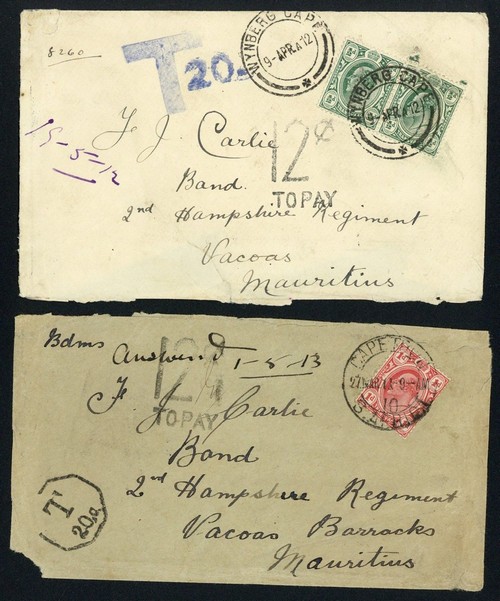 8260
T 20
WYNBERG CAPE
9-APR.12
WYNBERG CAPE
9-APR.12
15-5-12
F J Carlie
12c
TO PAY
Band
2nd Hampshire Regiment
Vacoas
Mauritius
Bdms
Answered 1-5-13
12c
TO PAY
F. J. Carlie
Band
T
20c
2nd Hampshire Regiment
Vacoas Barracks
Mauritius